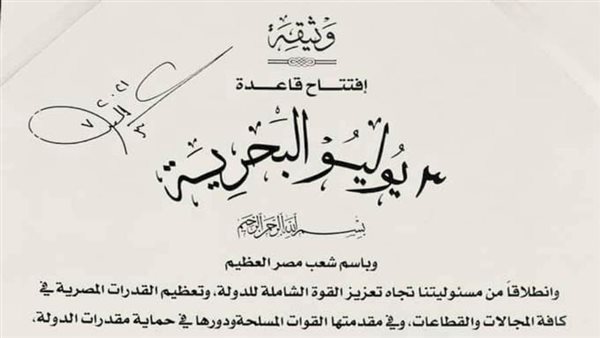 وثيقة
إفتتاح قاعدة
٣ يوليو البحرية
بسم الله الرحمن الرحيم
وباسم شعب مصر العظيم
وانطلاقاً من مسئوليتنا تجاه تعزيز القوة الشاملة للدولة، وتعظيم القدرات المصرية في
كافة المجالات والقطاعات، وفي مقدمتها القوات المسلحة ودورها في حماية مقدرات الدولة،